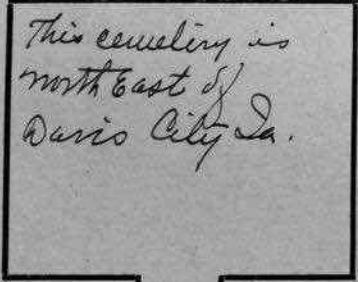 This cemetery is
North East of
Davis City Ia.